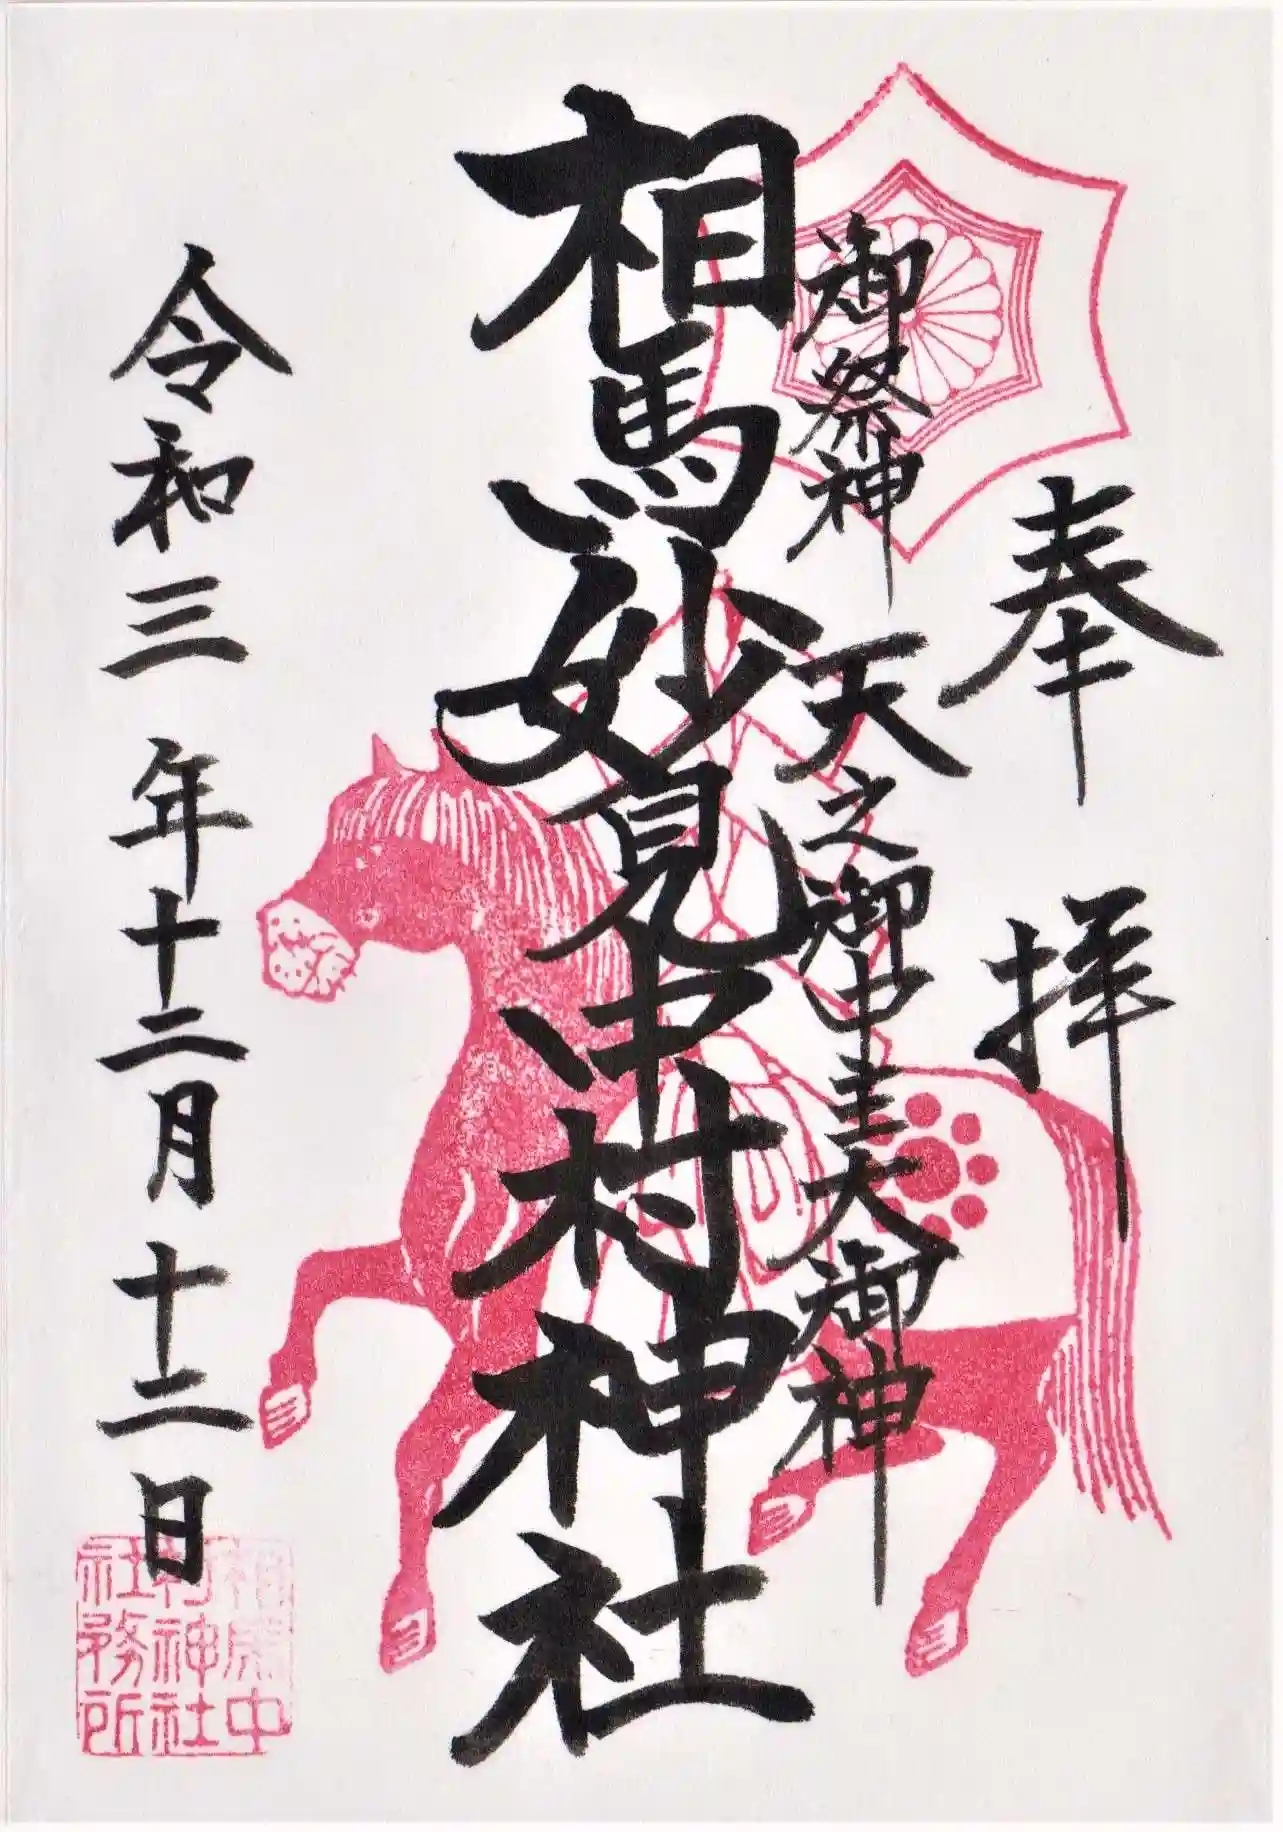 奉拝
御祭神 天之御中主大御神
相馬妙見中村神社
令和三年十二月十二日
相馬中
村神社
社務所